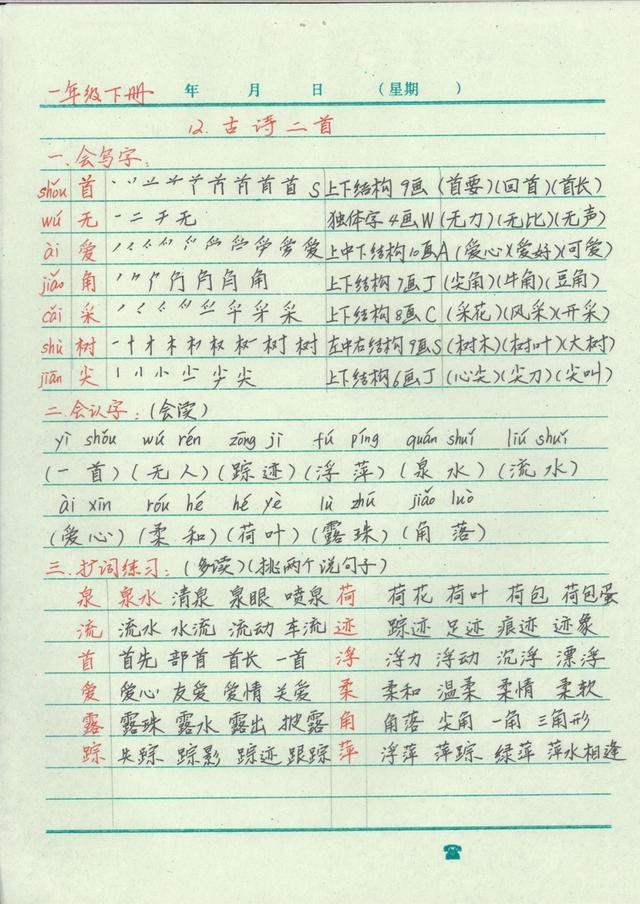 一年级下册 年 月 日 (星期 )
12.古诗二首
一.会写字:
shǒu 首 丷 䒑 首 首 首 首 S 上下结构 9画 (首要)(回首)(首长)
wú 无 一 二 于 无 独体字 4画 W (无力)(无比)(无声)
ài 爱 爱 爱 上中下结构 10画 A (爱心)(爱好)(可爱)
jiǎo 角 角 角 角 上下结构 7画 J (尖角)(牛角)(豆角)
cǎi 采 采 上下结构 8画 C (采花)(风采)(开采)
shù 树 一 十 才 木 权 权 树 树 左中右结构 9画 S (树木)(树叶)(大树)
jiān 尖 小 尖 尖 上下结构 6画 J (心尖)(尖刀)(尖叫)
二.会认字:(会读)
yì shǒu wú rén zōng jì fú píng quán shuǐ liú shuǐ
(一首)(无人)(踪迹)(浮萍)(泉水)(流水)
ài xīn róu hé hé yè lù zhū jiǎo luò
(爱心)(柔和)(荷叶)(露珠)(角落)
三.扩词练习:(多读)(挑两个说句子)
泉 泉水 清泉 泉眼 喷泉 荷 荷花 荷叶 荷包 荷包蛋
流 流水 水流 流动 车流 迹 踪迹 足迹 痕迹 迹象
首 首先 部首 首长 一首 浮 浮力 浮动 沉浮 漂浮
爱 爱心 友爱 爱情 关爱 柔 柔和 温柔 柔情 柔软
露 露珠 露水 露出 披露 角 角落 尖角 一角 三角形
踪 失踪 踪影 踪迹 跟踪 萍 浮萍 萍踪 绿萍 萍水相逢